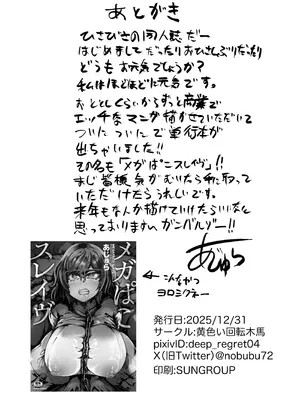 あとがき
ひさびさの同人誌だー
はじめましてだったりおひさしぶりだったり
どうもお元気でしょうか?
私はほどほどに元気です。
おととしくらいからずっと商業で
エッチなマンガ描かせていただいて
ついについに単行本が
出ちゃいました!!
その名も「メガぱにスレイヴ」!!
気がむいたら手に取って
いただけたらうれしいです。
来年もなんか描けていけたらいいなと
思っておりますんでガンバルゾー!!
あじゅら
ヨロシクネー
あじゅら
メガぱに
スレイヴ
発行日:2025/12/31
サークル:黄色い回転木馬
pixivID:deep_regret04
X(旧Twitter)@nobubu72
印刷:SUNGROUP